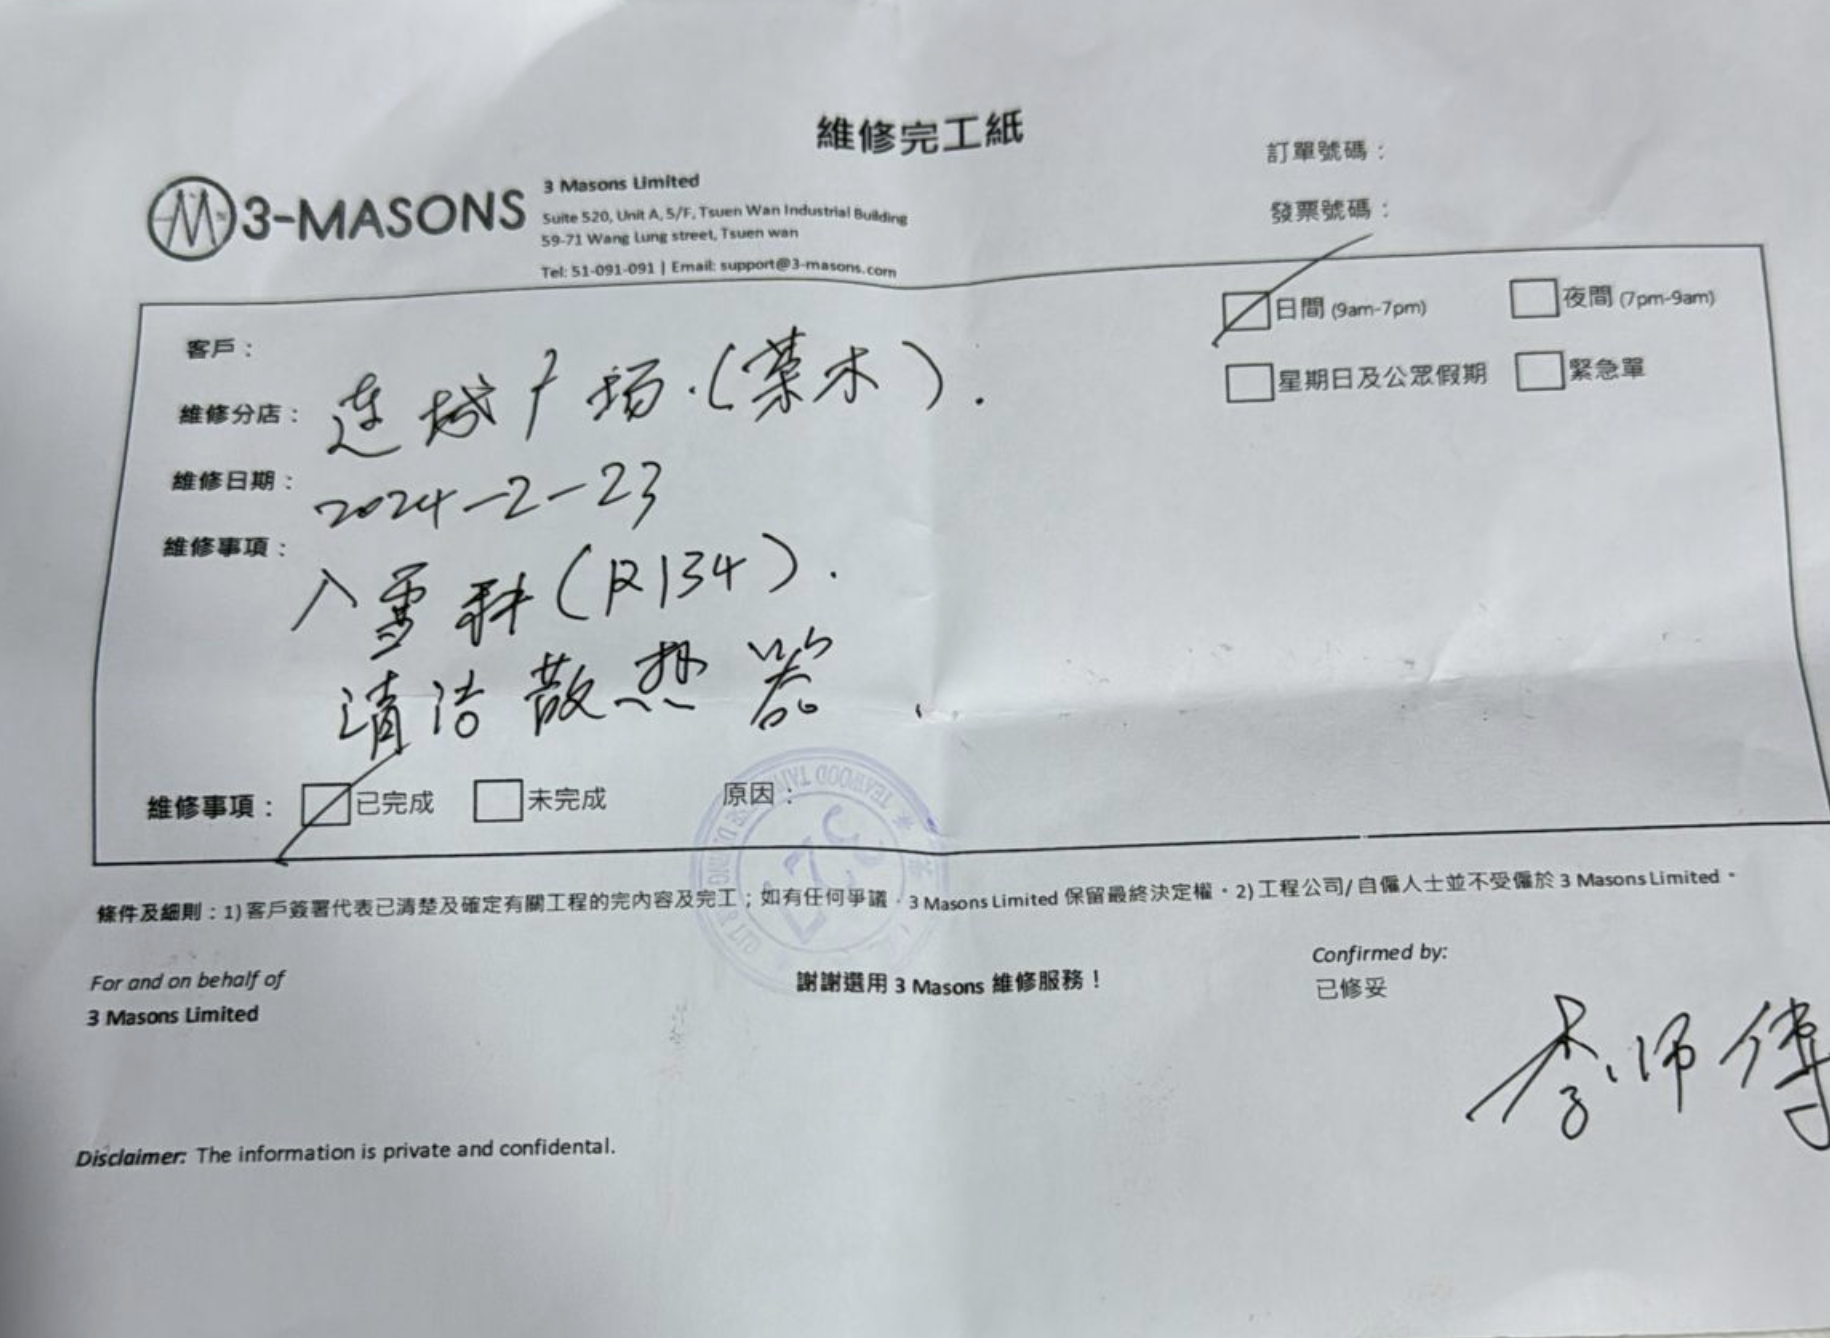 維修完工紙
訂單號碼：
發票號碼：
3-MASONS
3 Masons Limited
Suite 520, Unit A, 5/F, Tsuen Wan Industrial Building
59-71 Wang Lung street, Tsuen wan
Tel: 51-091-091 | Email: support@3-masons.com
日間 (9am-7pm)
夜間 (7pm-9am)
星期日及公眾假期
緊急單
客戶：
維修分店： 连城广场.(茶木).
維修日期： 2024-2-23
維修事項： 入雪种(R134).
清洁散热器
維修事項： 已完成 未完成 原因：
條件及細則：1) 客戶簽署代表已清楚及確定有關工程的完內容及完工；如有任何爭議，3 Masons Limited 保留最終決定權。2) 工程公司/ 自僱人士並不受僱於 3 Masons Limited。
For and on behalf of
3 Masons Limited
謝謝選用 3 Masons 維修服務！
Confirmed by:
已修妥
李师傅
Disclaimer: The information is private and confidental.